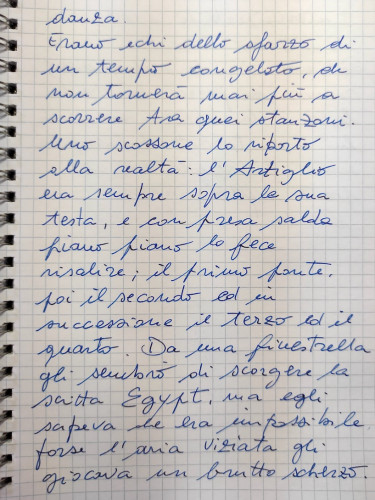 danza.
Erano echi dello sfarzo di
un tempo congelato, che
non tornerà mai più a
scorrere tra quei stanzoni.
Uno scossone lo riportò
alla realtà: l'Artiglio
era sempre sopra la sua
testa, e con presa salda
piano piano lo fece
risalire; il primo ponte,
poi il secondo ed in
successione il terzo ed il
quarto. Da una finestrella
gli sembrò di scorgere la
scritta Egypt, ma egli
sapeva che era impossibile
forse l'aria viziata gli
giocava un brutto scherzo.